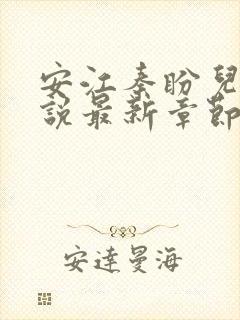 安江秦盼兒
說最新章節
安達曼海